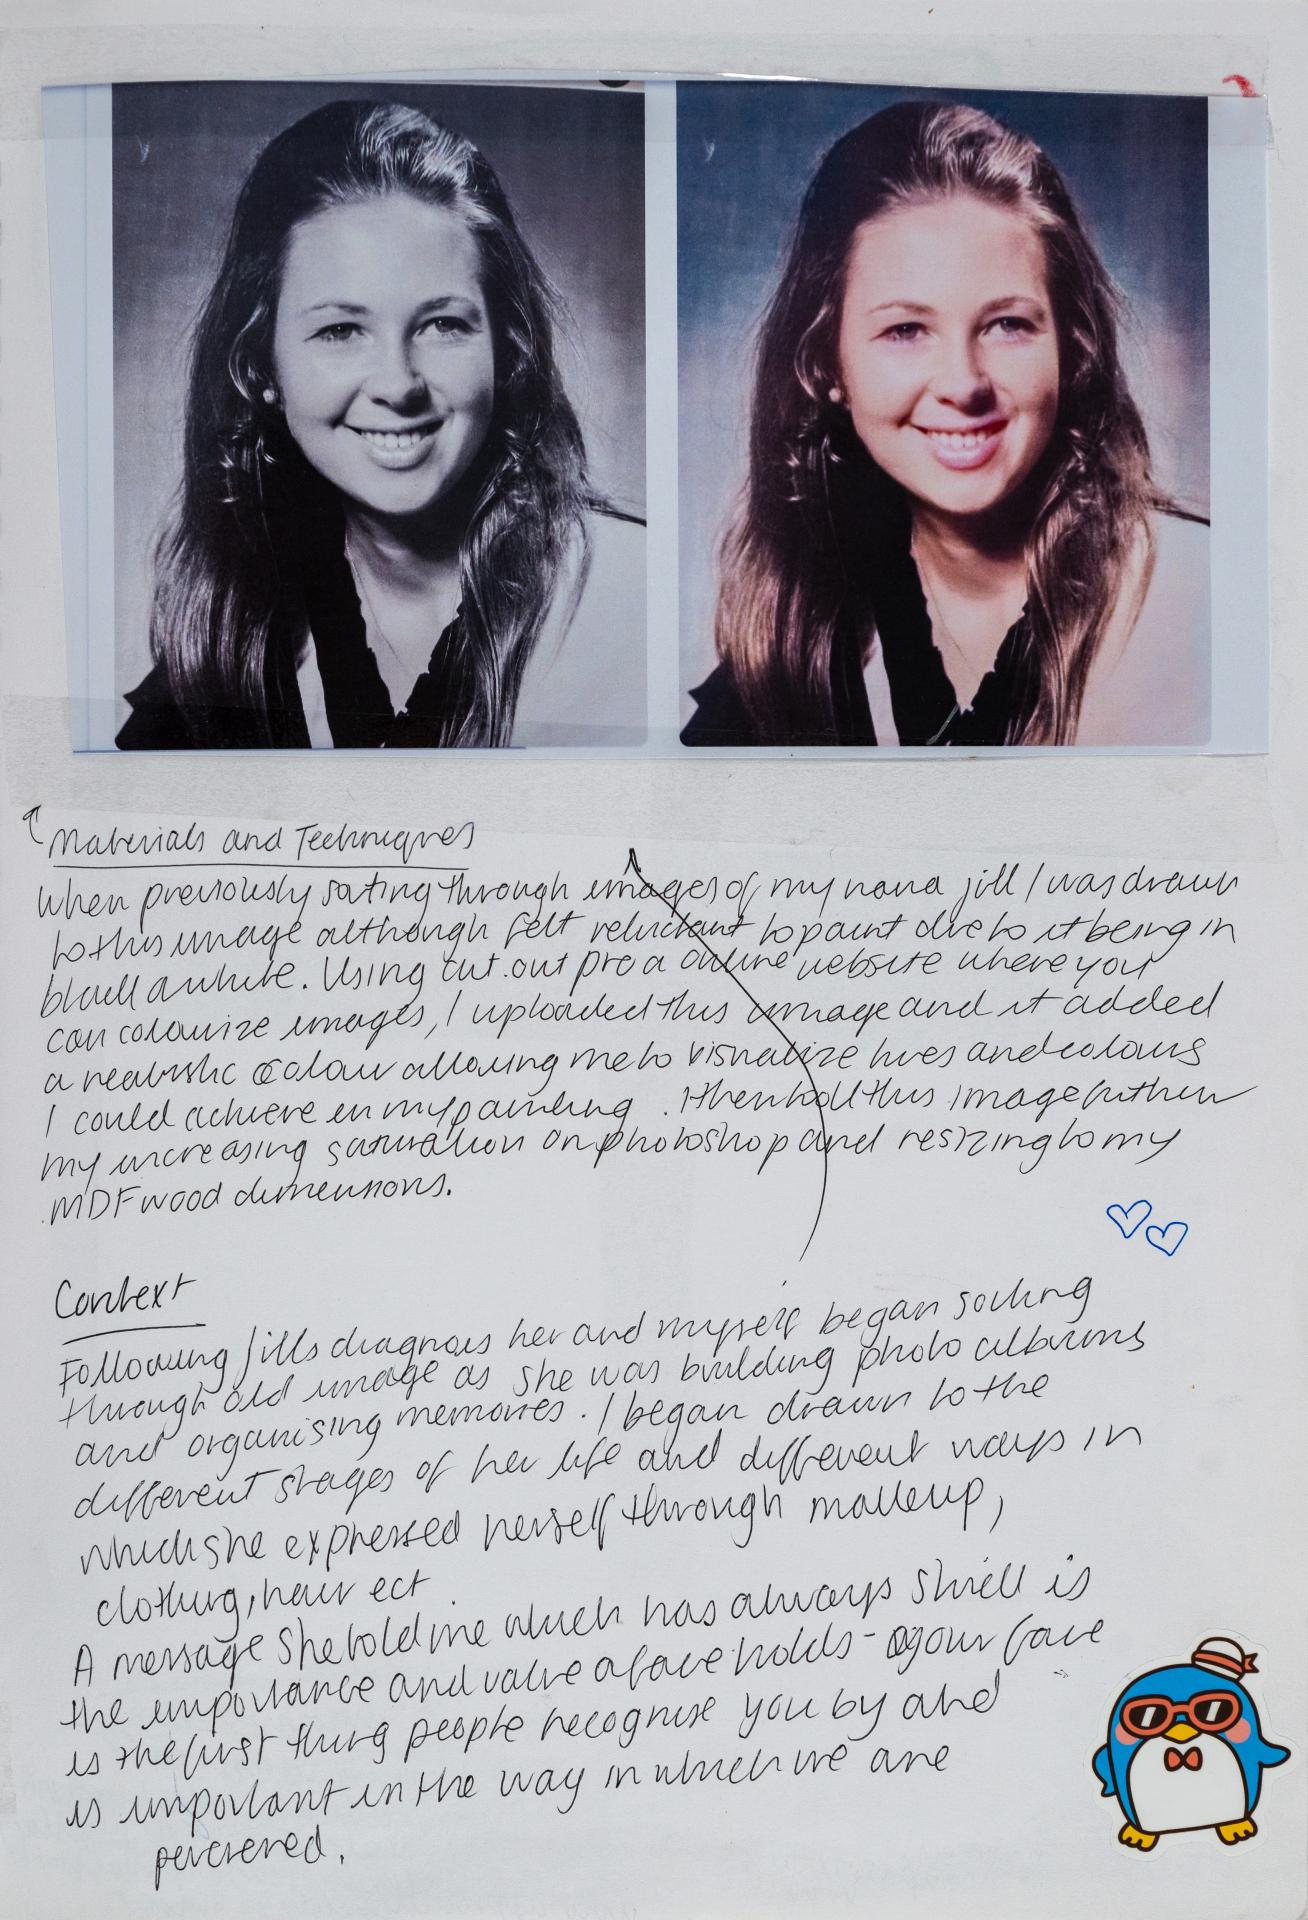 Materials and Techniques
When previously sorting through images of my nana jill I was drawn
to this image although felt reluctant to paint due to it being in
black a white. Using cut.out pro a online website where you
can colourize images, I uploaded this image and it added
a realistic colour allowing me to visualize hues and colours
I could achieve in my painting. I then took this image further
my increasing saturation on photoshop and resizing to my
MDF wood dimensions.
Context
Following Jills diagnosis her and myself began sorting
through old image as she was building photo albums
and organising memories. I began drawn to the
different stages of her life and different ways in
which she expressed herself through makeup,
clothing, hair ect
A message she told me which has always is
the importance and value a face holds - your face
is the first thing people recognise you by and
is important in the way in which we are
percieved.